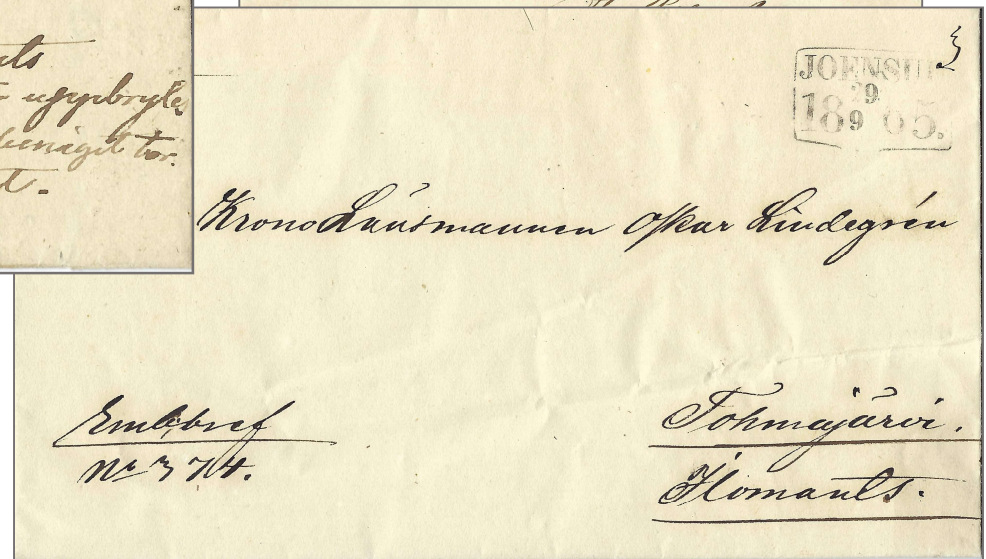 uppbrytes
benäget
JOENSUU
19
18 9 65.
KronoLänsmannen Oskar Lindegrén
Emb.bref
Nr 374.
Tohmajärvi.
Ilomants.